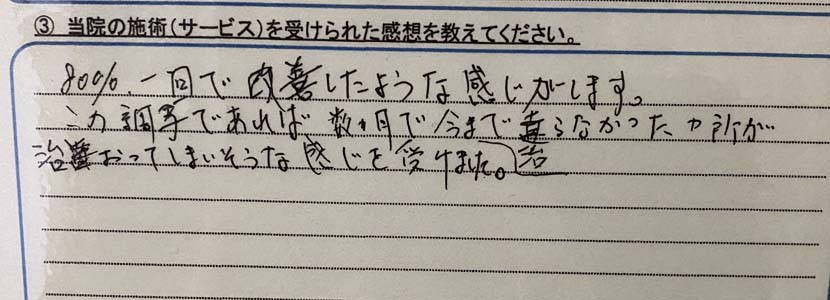 ③ 当院の施術(サービス)を受けられた感想を教えてください。
80%、一回で改善したような感じがします。
この調子であれば数ヶ月で今まで治らなかったカ所が
治おってしまいそうな感じを受けました。